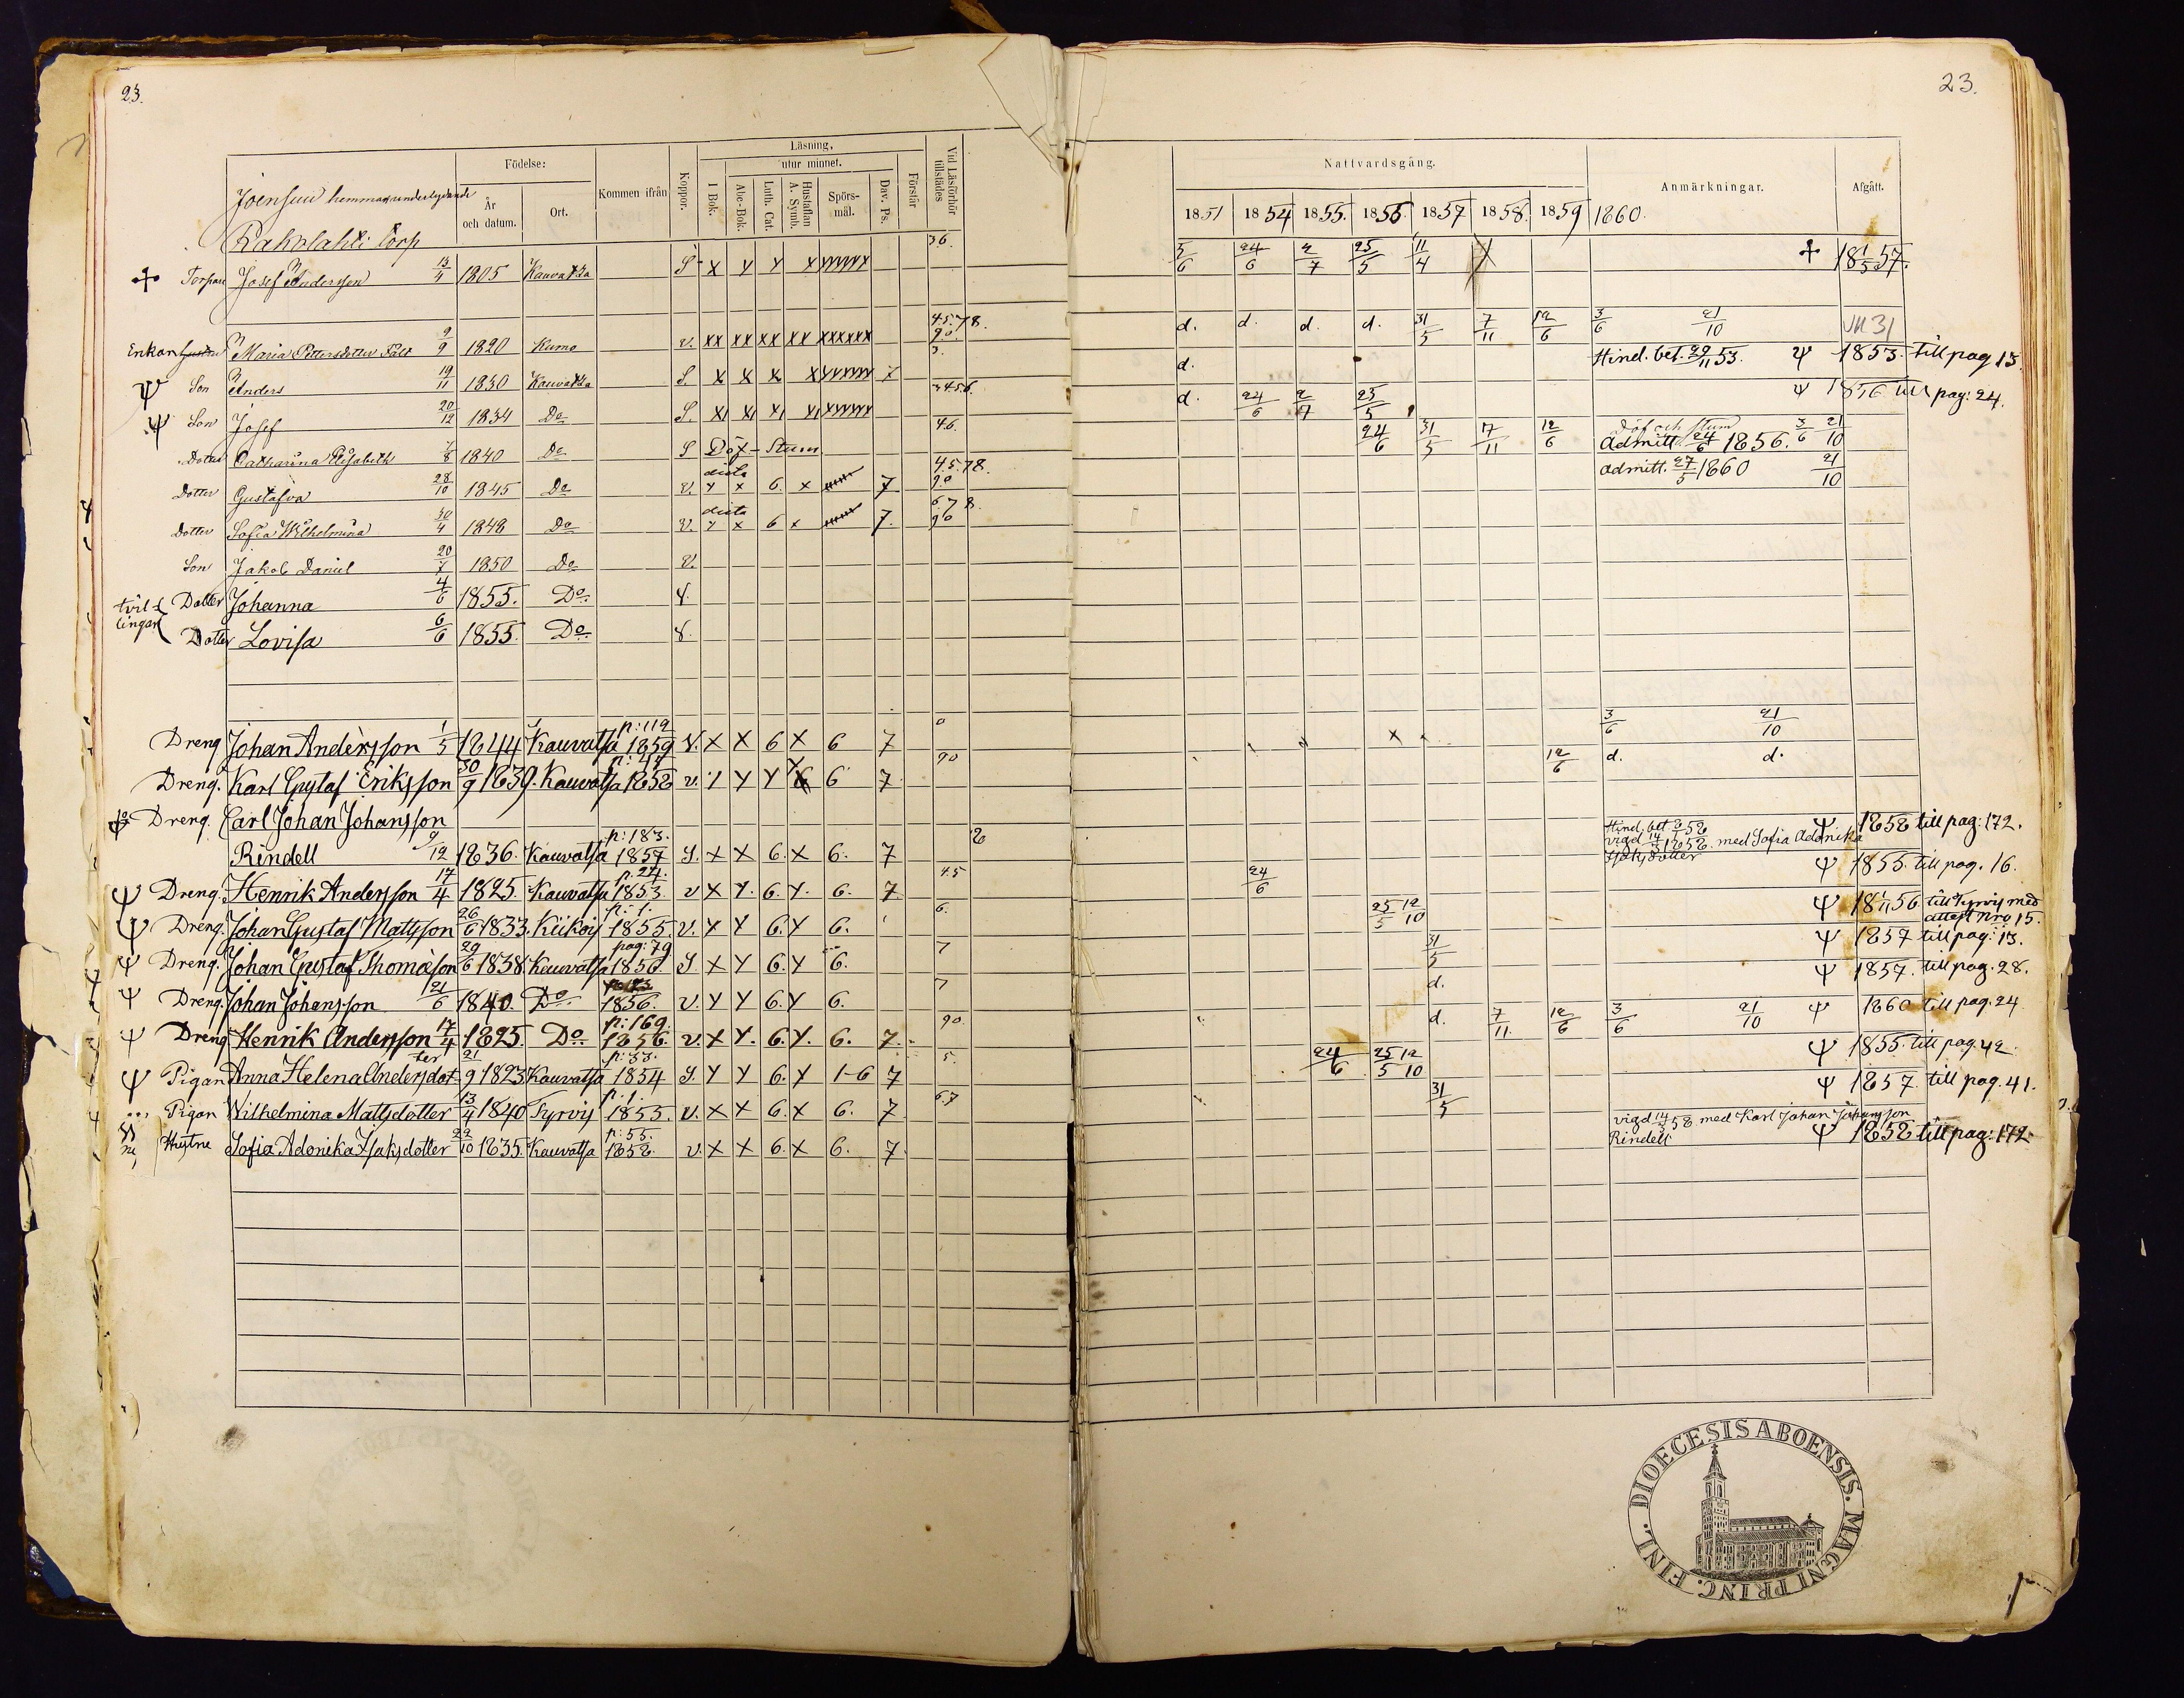 23.
23.
Joensuu hemman underlydande
Raholahti torp
Födelse:
År och datum.
Ort.
Kommen ifrån
Koppor.
Läsning,
utur minnet.
I Bok.
Abc-Bok.
Luth. Cat.
Hustaflan A. Symb.
Spörs-mål.
Dav. Ps.
Förstår
Vid Läsförhör tillstädes
Nattvardsgång.
1851 1854 1855. 1856. 1857 1858. 1859 1860.
Anmärkningar.
Afgått.
Torpare Josef Andersson 13/4 1805 Kauvatsa S x y y x 3.6. 5/6 24/6 2/7 25/5 11/4 18 1/5 57.
Enkan Maria Pettersdotter Fält 9/9 1820 Kumo v. xx xx xx xx xxxxxx 4.5.78. 90. d. d. d. d. 31/5 7/11 12/6 3/6 21/10
Son Anders 19/11 1830 Kauvatsa S. x x x x 3. d. Hind. bet. 29/11 53. Ψ 1853. till pag 13.
Son Josef 20/12 1834 Do S. 3456. d. 24/6 2/7 25/5 Ψ 1856 till pag: 24.
Dotter Catharina Elisabeth 1840 Do S Döf-Stum 46. 24/6 31/5 7/11 12/6 Döf och stum admitt. 24/6 1856. 3/6 21/10
Dotter Gustafva 28/10 1845 Do v. x 6. x 7 4.5.78. 90 admitt. 27/5 1860 21/10
Dotter Sofia Wilhelmina 30/4 1848 Do v. x 6 x 7. 6.78. 90
Son Jakob Daniel 1850 Do v.
tvil-lingar
Dotter Johanna 4/6 1855. Do
Dotter Lovisa 6/6 1855. Do
Dreng Johan Andersson 1/5 1844 Kauvatsa p: 119 1859 v. x x 6 x 6 7 0 3/6 21/10
Dreng. Karl Gustaf Eriksson 30/9 1839. Kauvatsa 1858 v. 6 7 90 12/6 d. d.
Dreng. Carl Johan Johansson
Rindell 9/12 1836. Kauvatsa p: 183. 1857 S. x x 6. x 6. 7 8 Hind. bet 58 vigd 14/3 1858. med Sofia Adonika Isaksdotter Ψ 1858 till pag: 172.
Ψ Dreng. Henrik Andersson 17/4 1825. Kauvatsa p. 24. 1853. v x y. 6. y. 6. 7. 45 24/6 Ψ 1855. till pag. 16.
Ψ Dreng. Johan Gustaf Mattsson 26/6 1833. Kiikois p: 1. 1855. v. x y 6. y 6. 6. 25/5 12/10 Ψ 18 1/11 56 till Tyrvis med attest Nro 15.
Ψ Dreng. Johan Gustaf Thomasson 29/6 1838. Kauvatsa pag: 79 1856. S. x y 6. y 6. 7 31/5 Ψ 1857 till pag: 13.
Ψ Dreng. Johan Johansson 21/6 1840. Do 1856. v. y y 6. y 6. 7 d. Ψ 1857. till pag. 28.
Ψ Dreng Henrik Andersson 17/4 1825. Do p: 169. 1856. v. x y. 6. y. 6. 7. 90 d. 7/11 12/6 3/6 21/10 Ψ 1860 till pag. 24
Ψ Pigan Anna Helena Andersdotter 21/9 1823 Kauvatsa p: 33. 1854 S. y y 6. y 1-6 7 5. 24/6 25/5 12/10 Ψ 1855. till pag. 42.
Pigan Wilhelmina Mattsdotter 13/4 1840 Tyrvis p: 1. 1853. v. x x 6. x 6. 7 6.7 31/5 Ψ 1857 till pag. 41.
Hustru Sofia Adonika Isaksdotter 29/10 1835. Kauvatsa p: 55. 1858. v. x x 6. x 6. 7. vigd 14/3 58 med Karl Johan Johansson Rindell Ψ 1858 till pag: 172
DIOECESIS ABOENSIS. MAGNI PRINC. FINL.